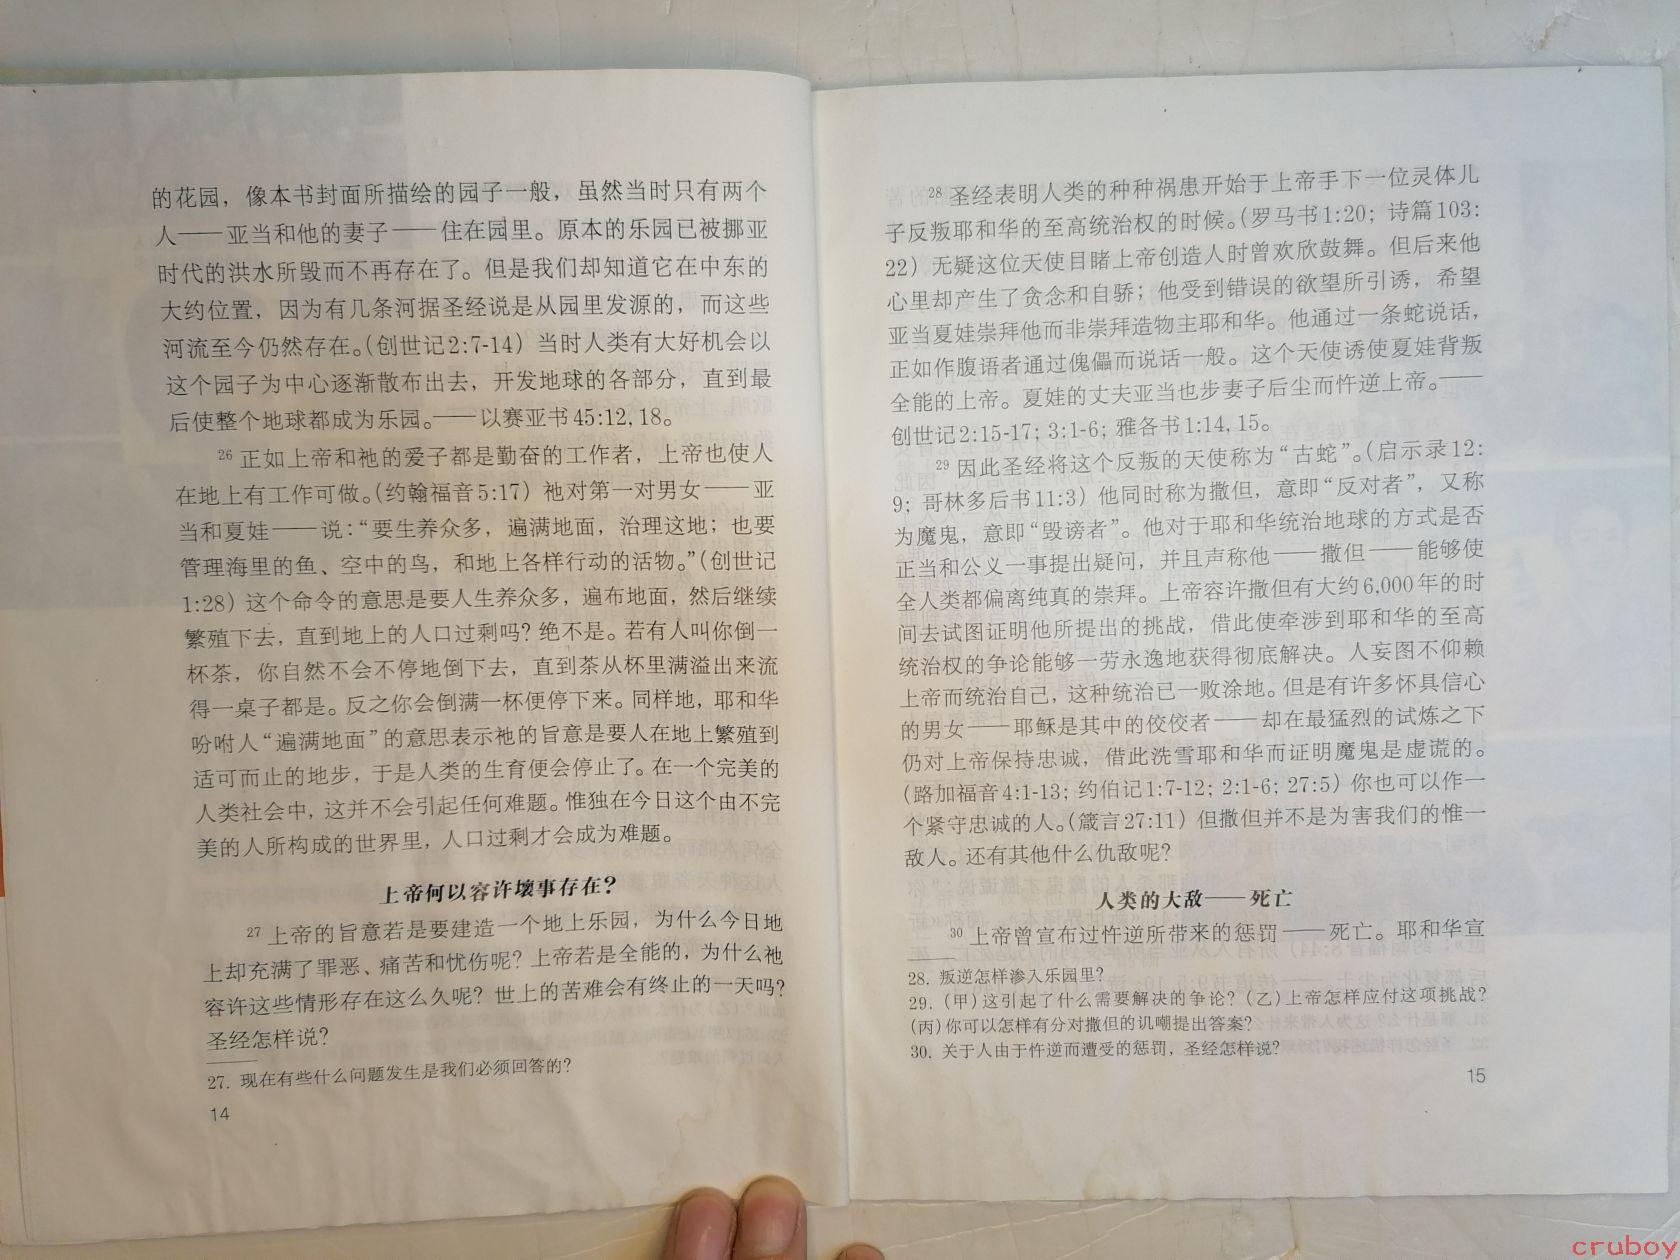 的花园，像本书封面所描绘的园子一般，虽然当时只有两个
人——亚当和他的妻子——住在园里。原本的乐园已被挪亚
时代的洪水所毁而不再存在了。但是我们却知道它在中东的
大约位置，因为有几条河据圣经说是从园里发源的，而这些
河流至今仍然存在。(创世记2:7-14）当时人类有大好机会以
这个园子为中心逐渐散布出去，开发地球的各部分，直到最
后使整个地球都成为乐园。——以赛亚书45:12, 18。
26 正如上帝和祂的爱子都是勤奋的工作者，上帝也使人
在地上有工作可做。(约翰福音5:17）祂对第一对男女——亚
当和夏娃——说：“要生养众多，遍满地面，治理这地；也要
管理海里的鱼、空中的鸟，和地上各样行动的活物。”(创世记
1:28）这个命令的意思是要人生养众多，遍布地面，然后继续
繁殖下去，直到地上的人口过剩吗？绝不是。若有人叫你倒一
杯茶，你自然不会不停地倒下去，直到茶从杯里满溢出来流
得一桌子都是。反之你会倒满一杯便停下来。同样地，耶和华
吩咐人“遍满地面”的意思表示祂的旨意是要人在地上繁殖到
适可而止的地步，于是人类的生育便会停止了。在一个完美的
人类社会中，这并不会引起任何难题。惟独在今日这个由不完
美的人所构成的世界里，人口过剩才会成为难题。
上帝何以容许壞事存在？
27 上帝的旨意若是要建造一个地上乐园，为什么今日地
上却充满了罪恶、痛苦和忧伤呢？上帝若是全能的，为什么祂
容许这些情形存在这么久呢？世上的苦难会有终止的一天吗？
圣经怎样说？
27. 现在有些什么问题发生是我们必须回答的？
14
28 圣经表明人类的种种祸患开始于上帝手下一位灵体儿
子反叛耶和华的至高统治权的时候。(罗马书1:20；诗篇103:
22）无疑这位天使目睹上帝创造人时曾欢欣鼓舞。但后来他
心里却产生了贪念和自骄；他受到错误的欲望所引诱，希望
亚当夏娃崇拜他而非崇拜造物主耶和华。他通过一条蛇说话，
正如作腹语者通过傀儡而说话一般。这个天使诱使夏娃背叛
全能的上帝。夏娃的丈夫亚当也步妻子后尘而忤逆上帝。——
创世记2:15-17; 3:1-6; 雅各书1:14, 15。
29 因此圣经将这个反叛的天使称为“古蛇”。(启示录12:
9; 哥林多后书11:3）他同时称为撒但，意即“反对者”，又称
为魔鬼，意即“毁谤者”。他对于耶和华统治地球的方式是否
正当和公义一事提出疑问，并且声称他——撒但——能够使
全人类都偏离纯真的崇拜。上帝容许撒但有大约6,000年的时
间去试图证明他所提出的挑战，借此使牵涉到耶和华的至高
统治权的争论能够一劳永逸地获得彻底解决。人妄图不仰赖
上帝而统治自己，这种统治已一败涂地。但是有许多怀具信心
的男女——耶稣是其中的佼佼者——却在最猛烈的试炼之下
仍对上帝保持忠诚，借此洗雪耶和华而证明魔鬼是虚谎的。
(路加福音4:1-13; 约伯记1:7-12; 2:1-6; 27:5）你也可以作一
个紧守忠诚的人。(箴言27:11）但撒但并不是为害我们的惟一
敌人。还有其他什么仇敌呢？
人类的大敌——死亡
30 上帝曾宣布过忤逆所带来的惩罚——死亡。耶和华宣
28. 叛逆怎样渗入乐园里？
29. (甲)这引起了什么需要解决的争论？(乙)上帝怎样应付这项挑战？
(丙)你可以怎样有分对撒但的讥嘲提出答案？
30. 关于人由于忤逆而遭受的惩罚，圣经怎样说？
15
cruboy